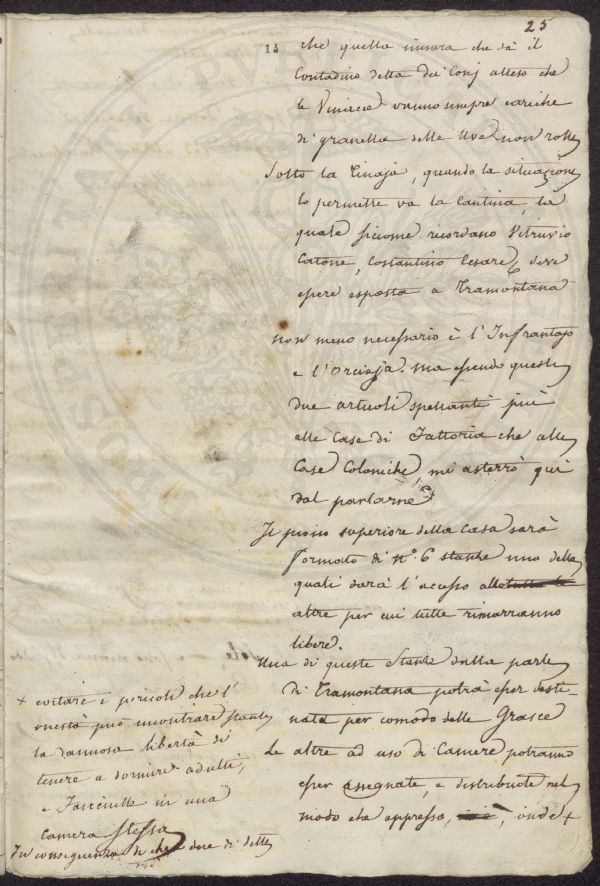 25
14
che quella misura che dà il
Contadino detta dei Conj atteso che
le Vinacce vanno sempre cariche
di granella delle Uve non rotte
Sotto la Tinaja, quando la situazione
lo permette va la Cantina, la
quale siccome ricordano Vitruvio
Catone, Costantino Cesare, deve
essere esposta a Tramontana
Non meno necessario è l'Infrantojo
e l'Orciaja. Ma essendo questi
due articoli spettanti più
alle Case di Fattoria che alle
Case Coloniche, mi asterrò qui
dal parlarne
Il piano superiore della Casa sarà
formato di N.° 6 stanze una delle
quali darà l'accesso alle tutte le
altre per cui tutte rimarranno
libere.
Una di queste Stanze dalla parte
di Tramontana potrà esser desti-
nata per comodo delle Grasce
Le altre ad uso di Camere potranno
esser assegnate, e distribuite nel
modo che appresso, onde +
+ evitare i pericoli che l'
onestà può incontrare stante
la dannosa libertà di
tenere a dormire adulti,
e Fanciulle in una
Camera stessa
In conseguenza di che due di dette